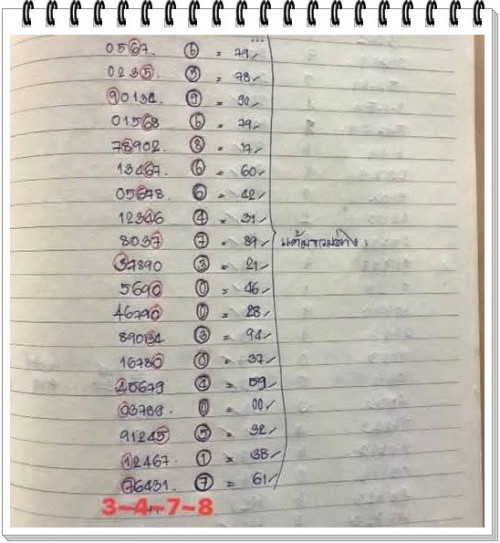 0567. 6 = 79
0235. 5 = 78
90134. 9 = 92
01568 6 = 79
78902 8 = 17
13467. 6 = 60
05678. 6 = 42
12346 4 = 31
8037 7 = 89
37890 3 = 21
5690 0 = 46
46790 0 = 28
89034 3 = 94
16780 0 = 37
45679 4 = 59
03789. 0 = 00
91245 5 = 32
12467. 1 = 38
76431. 7 = 61
3-4-7-8